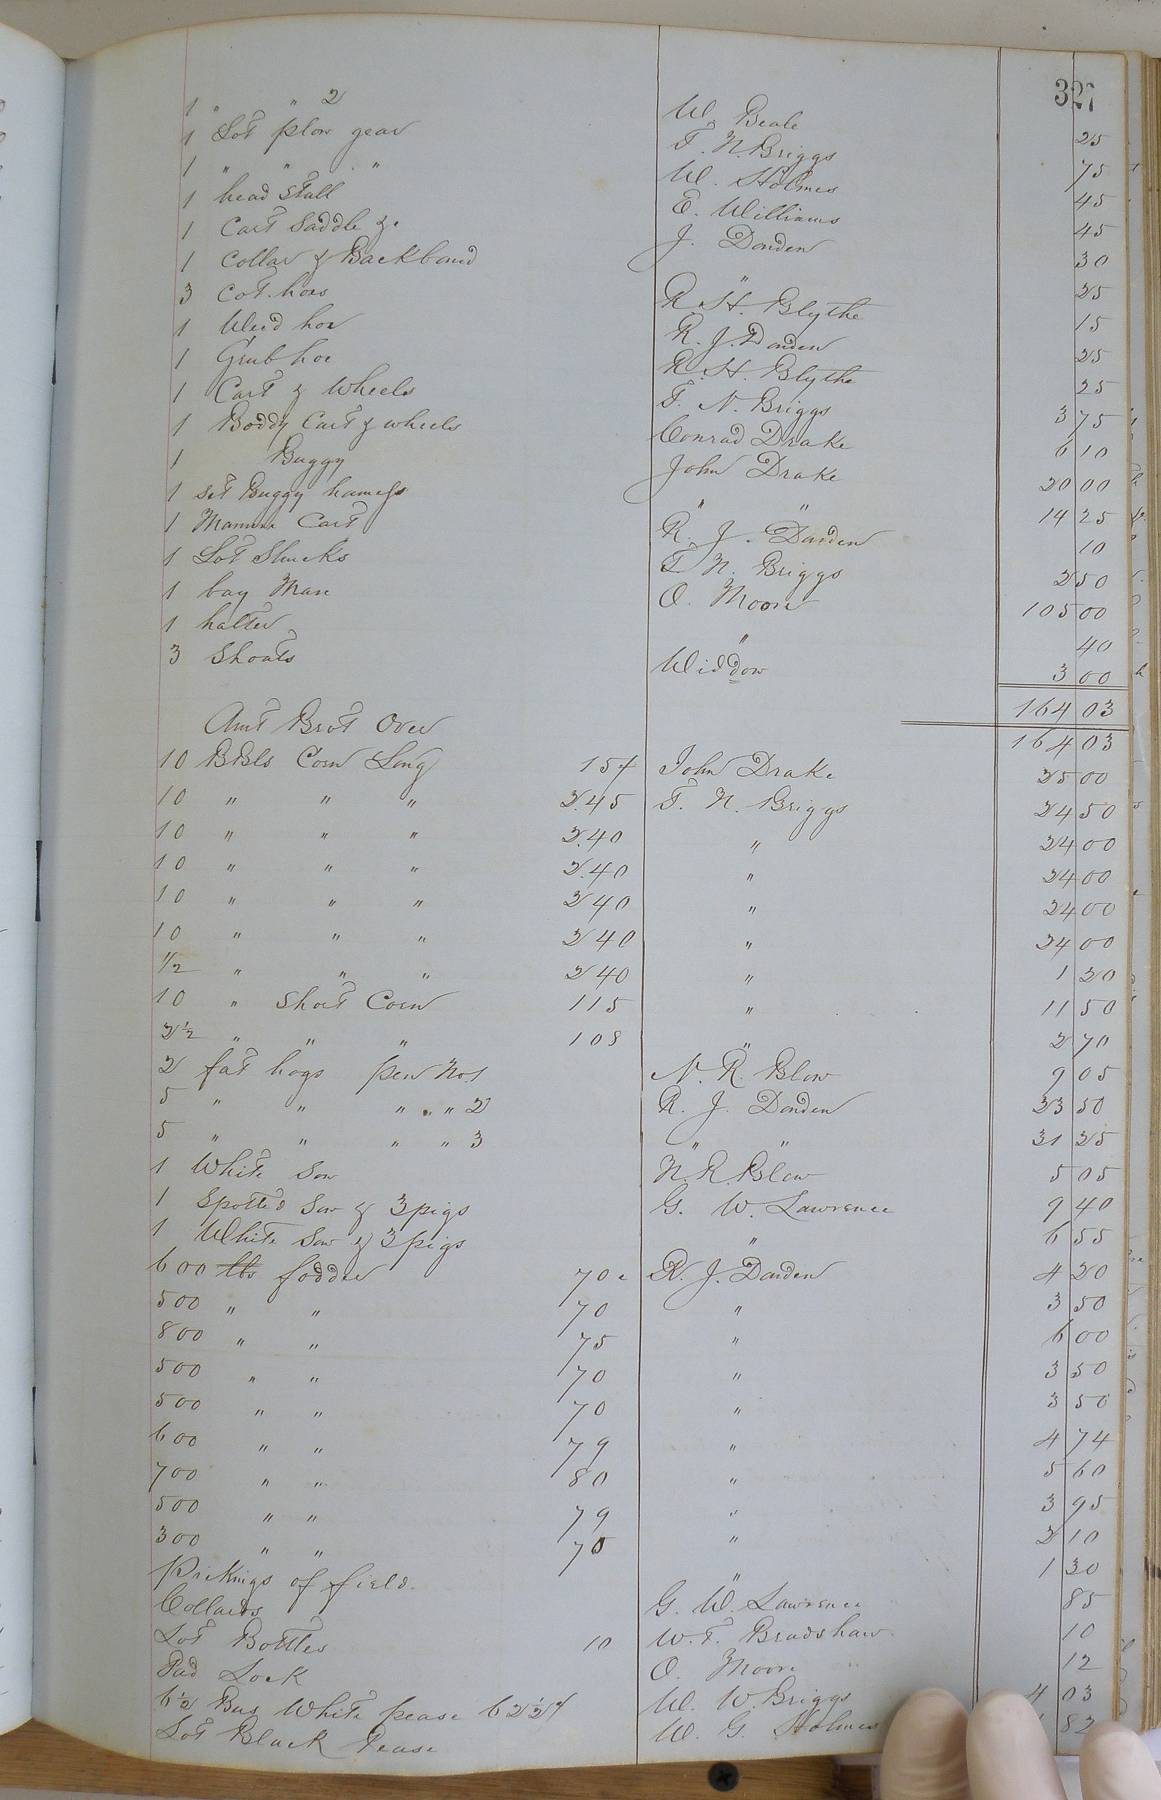 327
1 " " 2 W. Beale 25
1 Lot plow gear T. N. Briggs 75
1 " " " W. Holmes 45
1 head stall E. Williams 45
1 Cart Saddle &c. J. Darden 30
1 Collar & Backband " 25
3 Cot. hoes R. H. Blythe 15
1 Weed hoe R. J. Darden 25
1 Grub hoe R. H. Blythe 25
1 Cart & Wheels T. N. Briggs 3 75
1 Boddy Cart & wheels Conrad Drake 6 10
1 Buggy John Drake 20 00
1 set Buggy harness " " 14 25
1 Manure Cart R. J. Darden 10
1 Lot Shucks T. N. Briggs 2 50
1 bay Mare O. Moore 105 00
1 halter " 40
3 Shoats Widdow 3 00
164 03
Amt Brot Over 164 03
10 BBls Corn Long John Drake 25 00
10 " " " 2.45 T. N. Briggs 24 50
10 " " " 2.40 " 24 00
10 " " " 2.40 " 24 00
10 " " " 240 " 24 00
10 " " " 240 " 24 00
1/2 " " " 240 " 1 20
10 " Short Corn 115 " 11 50
2 1/2 " " " 108 " 2 70
2 fat hogs pen No 1 N. R. Blow 9 05
5 " " " " 2 R. J. Darden 23 50
5 " " " " 3 " " 31 25
1 White Sow N. R. Blow 5 05
1 Spotted Sow & 3 pigs G. W. Lawrence 9 40
1 White Sow & 3 pigs " 6 55
600 lbs fodder 70 c R. J. Darden 4 20
500 " " 70 " 3 50
800 " " 75 " 6 00
500 " " 70 " 3 50
500 " " 70 " 3 50
600 " " 79 " 4 74
700 " " 80 " 5 60
500 " " 79 " 3 95
300 " " 70 " 2 10
Pickings of field. " 1 30
Collards G. W. Lawrence 85
Lot Bottles 10 W. T. Bradshaw 10
Pad Lock O. Moore 12
6 1/2 Bus White pease 62 1/2 W. W. Briggs 4 03
Lot Black Pease W. G. Holmes 82